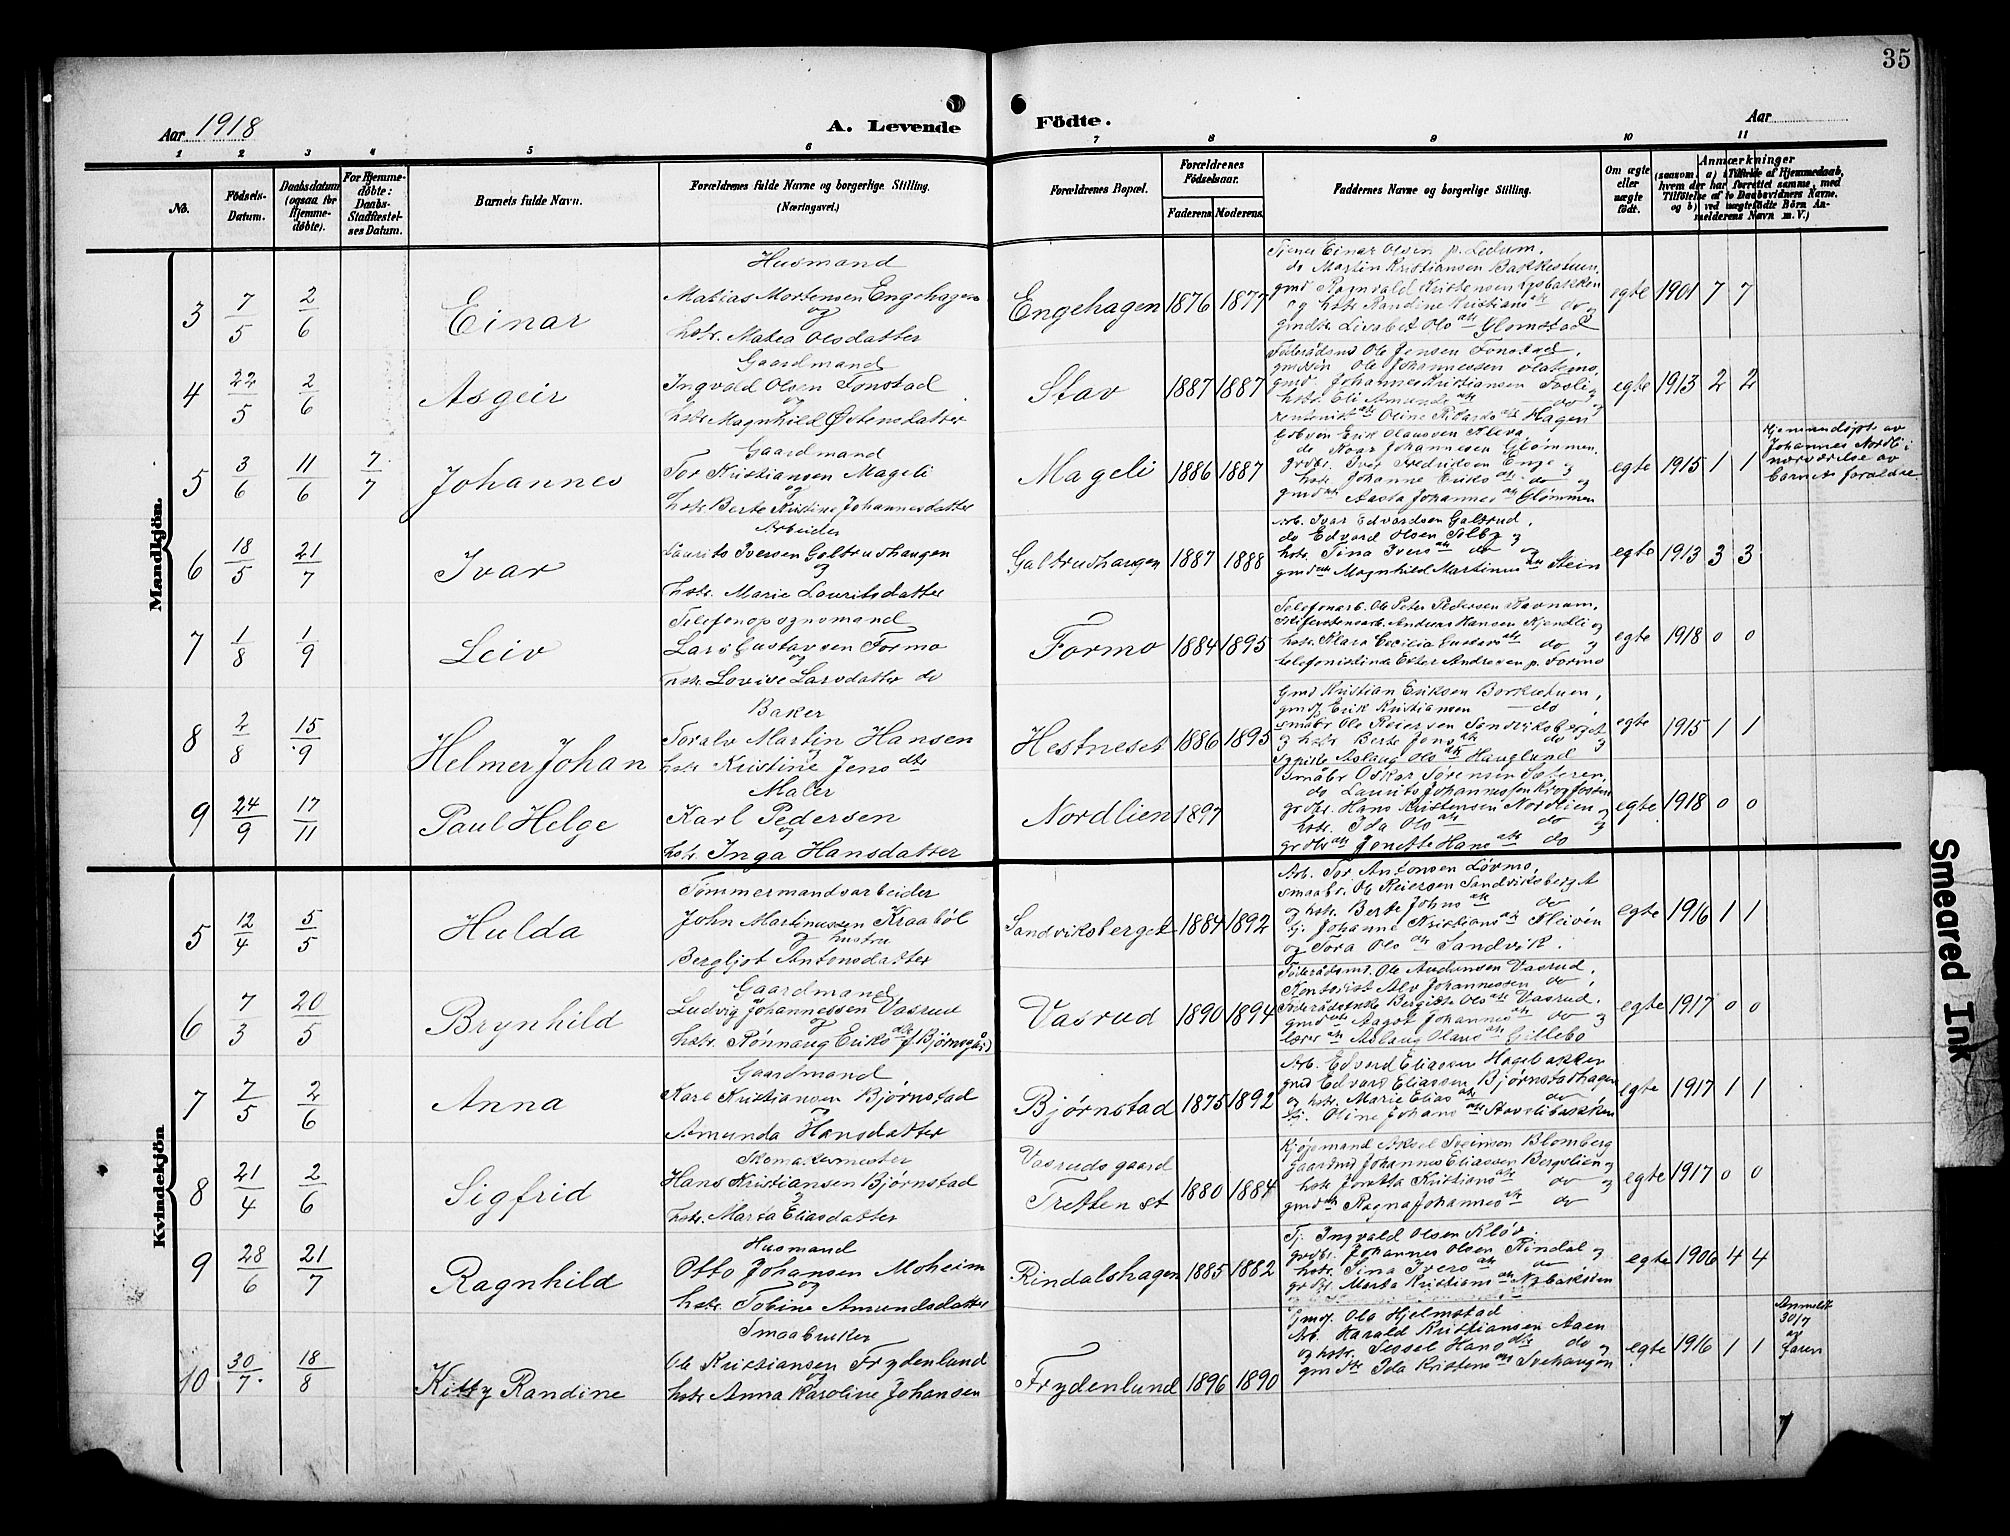 35
Aar 1918
A. Levende Födte.
Aar
1 2 3 4 5 6 7 8 9 10 11
No.
Födsels-Datum.
Daabsdatum (ogsaa for Hjemmedöbte).
For Hjemmedöbte: Daabs-Stadfæstelses Datum.
Barnets fulde Navn.
Forældrenes fulde Navne og borgerlige Stilling.
(Næringsvei.)
Forældrenes Bopæl.
Forældrenes Födselsaar.
Faderens. Moderens.
Faddernes Navne og borgerlige Stilling.
Om ægte eller uægte födt.
Anmærkninger
(saasom: a) i Tilfælde af Hjemmedaab,
hvem der har forrettet samme, med
Tilföielse af to Daabsvidners Navne,
og b) ved uægtefödte Börn Anmelderens Navn m. V.)
Mandkjön.
3 7/5 2/6 Einar
Husmand
Matias Mortensen Engehagen
og
hstr. Matea Olsdatter
Engehagen 1876 1877
Tjener Einar Olsen p. Ledum,
do Martin Kristiansen Bakkestuen,
gmd Ragnvald Kristensen Lysbakken
og hstr Randine Kristians dtr do og
gmdtr Lisabet Ols dtr Glomstad
egte 1901 7 7
4 22/5 2/6 Asgeir
Gaardmand
Ingvald Olsen Fonstad
og
hstr Magnhild Østensdatter
Stav 1887 1887
Føderådsmd Ole Jensen Fonstad,
gmdsøn Ole Johannessen
gmd. Johannes Kristiansen Fosli og
hstr. Eli Amunds dtr do og
Oline Rikards dtr Hagen
egte 1913 2 2
5 3/6 11/6 7/7 Johannes
Gaardmand
Tor Kristiansen Mageli
og
hstr. Berte Kristine Johannesdatter
Mageli 1886 1887
Erik Olaussen Kleva
do Roar Johannesen Glømmen,
grdbr. Iver Fredriksen Enge og
hstr. Johanne Eriks dtr do og
gmd dtr Aasta Johannes dtr Glømmen
egte 1915 1 1
Hjemmedøpt av
Johannes Nordli i
nærværelse av
barnets forældre
6 18/5 21/7 Ivar
Arbeider
Laurits Iversen Galtrudhaugen
og
hstr. Marie Lauritsdatter
Galtrudhaugen 1887 1888
Arb. Ivar Edvardsen Galtrud,
do Edvard Olsen Solby og
hstr. Tina Ivers dtr do og
gmd dtr Magnhild Martinus dtr Stein
egte 1913 3 3
7 1/8 1/9 Leiv
Telefonopsynsmand
Lars Gustavsen Formo
og
hstr. Lovise Larsdatter do
Formo 1884 1895
Telefonarb. Ole Peter Pedersen Ravnam,
Anders Hansen Kjendli og
hstr. Klara Cecilia Gustavs dtr do og
telefonistinde Ester Andresen p. Formo
egte 1918 0 0
8 2/8 15/9 Helmer Johan
Baker
Toralv Martin Hansen
og
hstr Kristine Jens dtr
Hestneset 1886 1895
Gmd Kristian Eriksen Borketuen,
gmdsøn Erik Kristiansen do,
småbr Ole Reiersen Sandviksberget
og hstr Berte Jons dtr do og
Aslaug Ols dtr Hauglund
egte 1915 1 1
9 24/9 17/11 Paul Helge
Maler
Karl Pedersen
og
hstr. Inga Hansdatter
Nordlien 1897
Småbr Oskar Sørensen Sæteren,
do Laurits Johannessen Krogfossen
grdbr. Hans Kristensen Nordlien og
hstr. Ida Ols dtr do og
grdbr dtr Jenette Hans dtr do
egte 1918 0 0
Kvindekjön
5 12/4 5/5 Hulda
Tømmermandsarbeider
John Martinussen Kraabøl
og hustru
Bergljot Antonsdatter
Sandviksberget 1884 1892
Arb. Tor Antonsen Løvmo,
smaabr. Ole Reiersen Sandviksberget
og hstr. Berte Johns dtr do
tj. Johanne Kristians dtr Kleivén
og Tora Ols dtr Sandvik.
egte 1916 1 1
6 7/3 20/5 Brynhild
Gaardmand
Ludvig Johannessen Vasrud
og
hstr. Rønnaug Eriks dtr (f Bjørnsgård)
Vasrud 1890 1894
Føderådsmd. Ole Audunsen Vasrud,
Kontorist Alv Johannessen do,
Føderådsenke Bergitte Ols dtr Vasrud,
gmd dtr Aagot Johannes dtr do og
lærer dtr Aslaug Olaus dtr Gillebo
egte 1917 0 0
7 7/5 2/6 Anna
Gaardmand
Karl Kristiansen Bjørnstad
og
Amunda Hansdatter
Bjørnstad 1875 1892
Arb. Edvard Eliassen Hagebakken
gmd Edvard Eliassen Bjørnstadhagen
og hstr. Marie Elias dtr do
tj. Oline Johans dtr Stavslibakken
egte 1917 1 1
8 21/4 2/6 Sigfrid
Skomakermester
Hans Kristiansen Bjørnstad
og
hstr. Marta Eliasdatter
Vasrudsgaard
Tretten st 1880 1884
Kjøpmand Aksel Sveinsen Blomberg
Gaardmd Johannes Eliassen Bergslien og
hstr Joretta Kristians dtr do og
gmd dtr Ragna Johannes dtr do
egte 1917 0 0
9 28/6 21/7 Ragnhild
Husmand
Otto Johansen Moheim
og
hstr. Tobine Amundsdatter
Rindalshagen 1885 1882
Tj. Ingvald Olsen Kløv.
grdbr. Johannes Olsen Rindal og
hstr. Tina Ivers dtr do,
grdbr. Marta Kristians dtr Nybakken
egte 1906 4 4
10 30/7 18/8 Kitty Randine
Smaabruker
Ole Kristiansen Frydenlund
og
hstr Anna Karoline Johansen
Frydenlund 1896 1890
Gmd. Ola Hjelmstad
Arb. Harald Kristiansen Aaen
og hstr. Sessel Hans dtr do og
gmd dtr Ida Kristens dtr Svehaugen
egte 1916 1 1
Anmeldt
30/7
av
faren
Smeared Ink